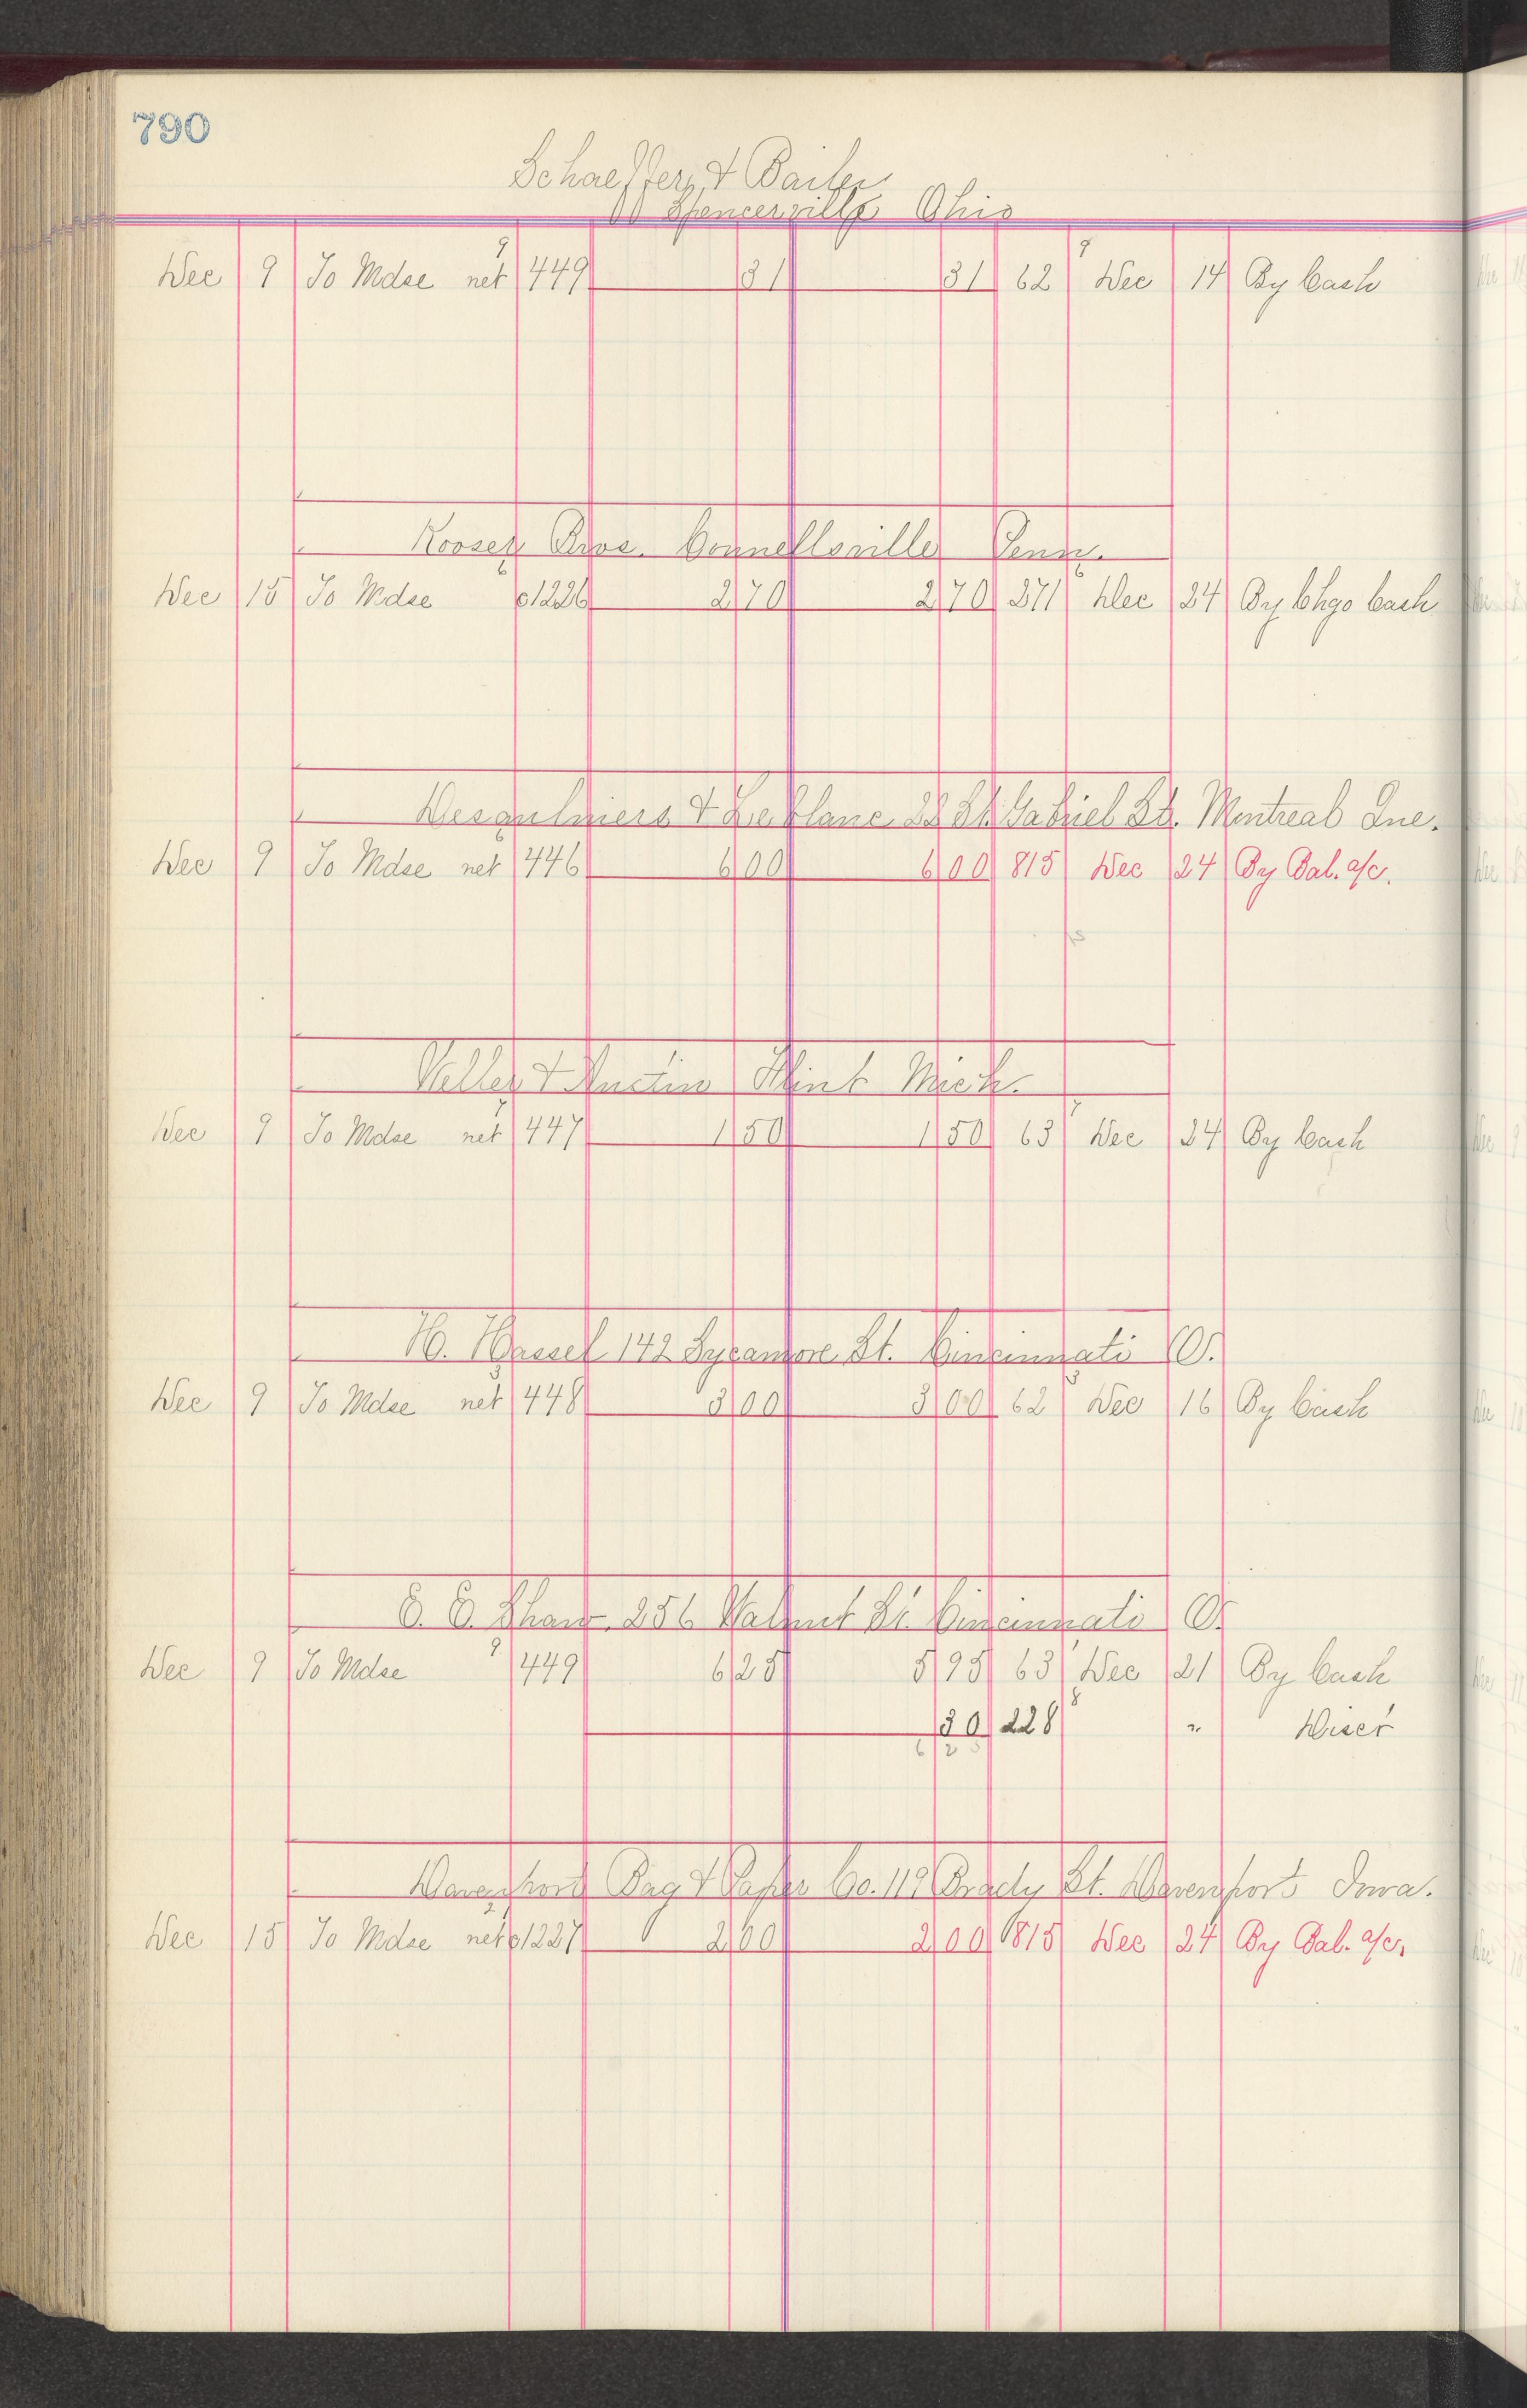 790
Schaeffer & Bailer
Spencerville Ohio
Dec 9 To Mdse net 9 449 31 31 62 9 Dec 14 By Cash
Kooser Bros. Connellsville Penn.
Dec 15 To Mdse 6 C1226 2 70 2 70 371 6 Dec 24 By Chgo Cash
Desaulniers & LeBlanc 28 St. Gabriel St. Montreal Que.
Dec 9 To Mdse net 446 6 00 6 00 815 Dec 24 By Bal. a/c.
Veller & Austin Flint Mich.
Dec 9 To Mdse net 7 447 1 50 1 50 63 7 Dec 24 By Cash
H. Hassel 142 Sycamore St. Cincinnati O.
Dec 9 To Mdse net 3 448 3 00 3 00 62 3 Dec 16 By Cash
E. E. Shaw 256 Walnut St. Cincinnati O.
Dec 9 To Mdse 9 449 6 25 5 95 63 Dec 21 By Cash
30 228 8 " Disct
6 25
Davenport Bag & Paper Co. 119 Brady St. Davenport Iowa.
Dec 15 To Mdse net C1227 2 00 2 00 815 Dec 24 By Bal. a/c.